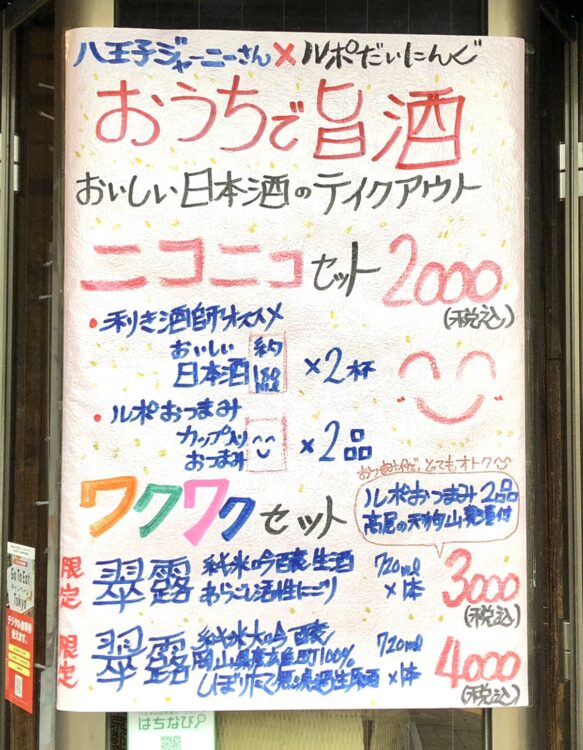 八王子ジャーニーさん×ルポだいにんぐ
おうちで旨酒
おいしい日本酒のテイクアウト
ニコニコセット 2000
(税込)
・利き酒師オススメ
おいしい 約
日本酒 180ml ×2杯
・ルポおつまみ
カップ入り
おつまみ ×2品
とってもオトク
ワクワクセット
ルポおつまみ2品
高尾の天狗山葵漬付
限定 翠露 純米吟醸生酒 720ml
あらごし活性にごり ×1本
3000
(税込)
限定 翠露 純米大吟醸 720ml
岡山県産雄町100%
しぼりたて無濾過生原酒 ×1本
4000
(税込)
Go To Eat
キャンペーン
Tokyo
デジタル食事券
使えます。
はちなび